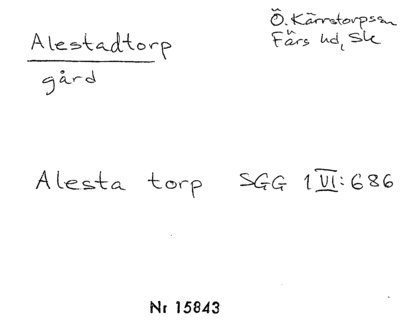 Alestadtorp
gård
Ö. Kärrstorpssn
Färs hd, Sk
Alesta torp SGG 1 VI:686
Nr 15843